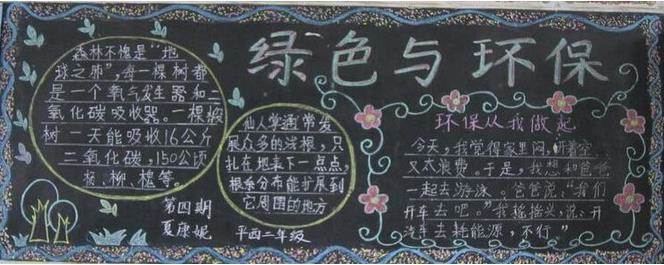 绿色与环保
森林不愧是“地
球之肺”,每一棵树都
是一个氧气发生器和二
氧化碳吸收器。一棵椴
树一天能吸收16公斤
二氧化碳,150公顷
杨、柳、槐等。
第四期
夏康妮
仙人掌通常发
展众多的浅根,只
扎在地表下一点点,
根系分布能扩展到
它周围的地方
平西二年级
环保从我做起
今天,我觉得家里闷,开着空
又太浪费。于是,我想和爸爸
一起去游泳。爸爸说:“我们
开车去吧。”我摇摇头,说:“开
汽车去耗能源,不行”